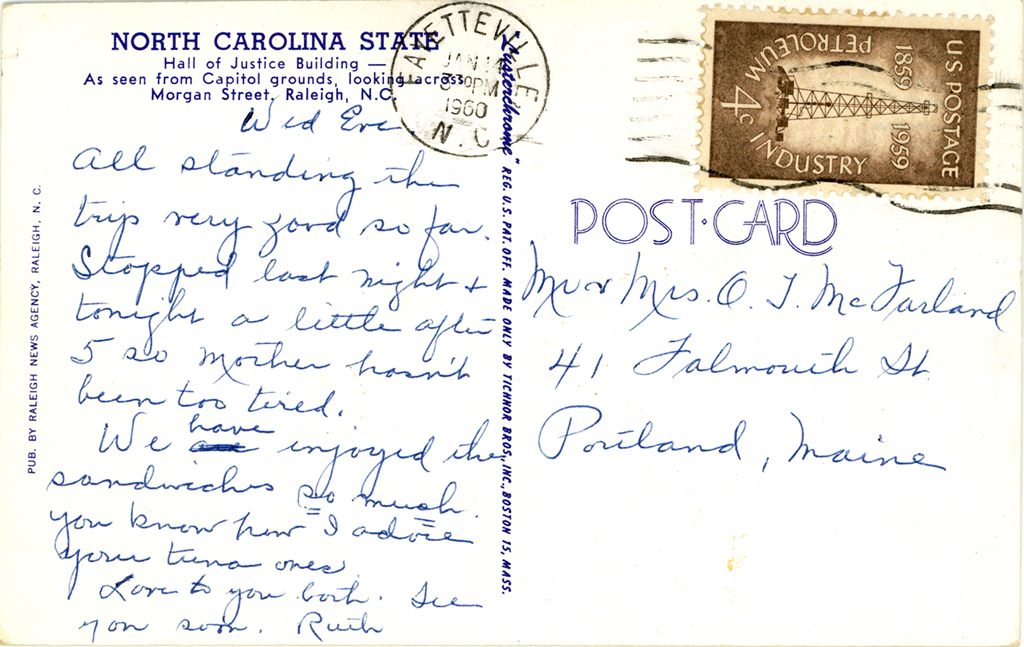 NORTH CAROLINA STATE
Hall of Justice Building —
As seen from Capitol grounds, looking across
Morgan Street, Raleigh, N.C.
Wed Eve.
All standing the
trip very good so far.
Stopped last night +
tonight a little after
5 so Mother hasn't
been too tired.
We have enjoyed the
sandwiches so much.
You know how I adore
your tuna ones
Love to you both. See
you soon. Ruth
PUB. BY RALEIGH NEWS AGENCY, RALEIGH, N. C.
"Lusterchrome" REG. U.S. PAT. OFF. MADE ONLY BY TICHNOR BROS., INC., BOSTON 15, MASS.
FAYETTEVILLE
JAN 14
3 30 PM
1960
N.C.
U.S. POSTAGE
1859 1959
PETROLEUM
INDUSTRY
4c
POST·CARD
Mr & Mrs. O. J. McFarland
41 Falmouth St.
Portland, Maine